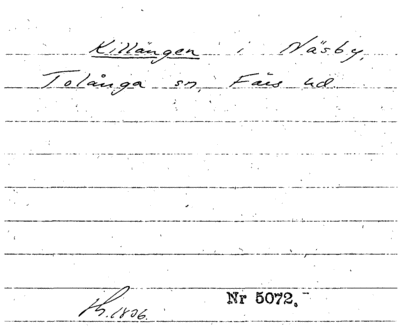 Killången i Näsby,
Tolånga sn, Färs hd
Nr 5072.